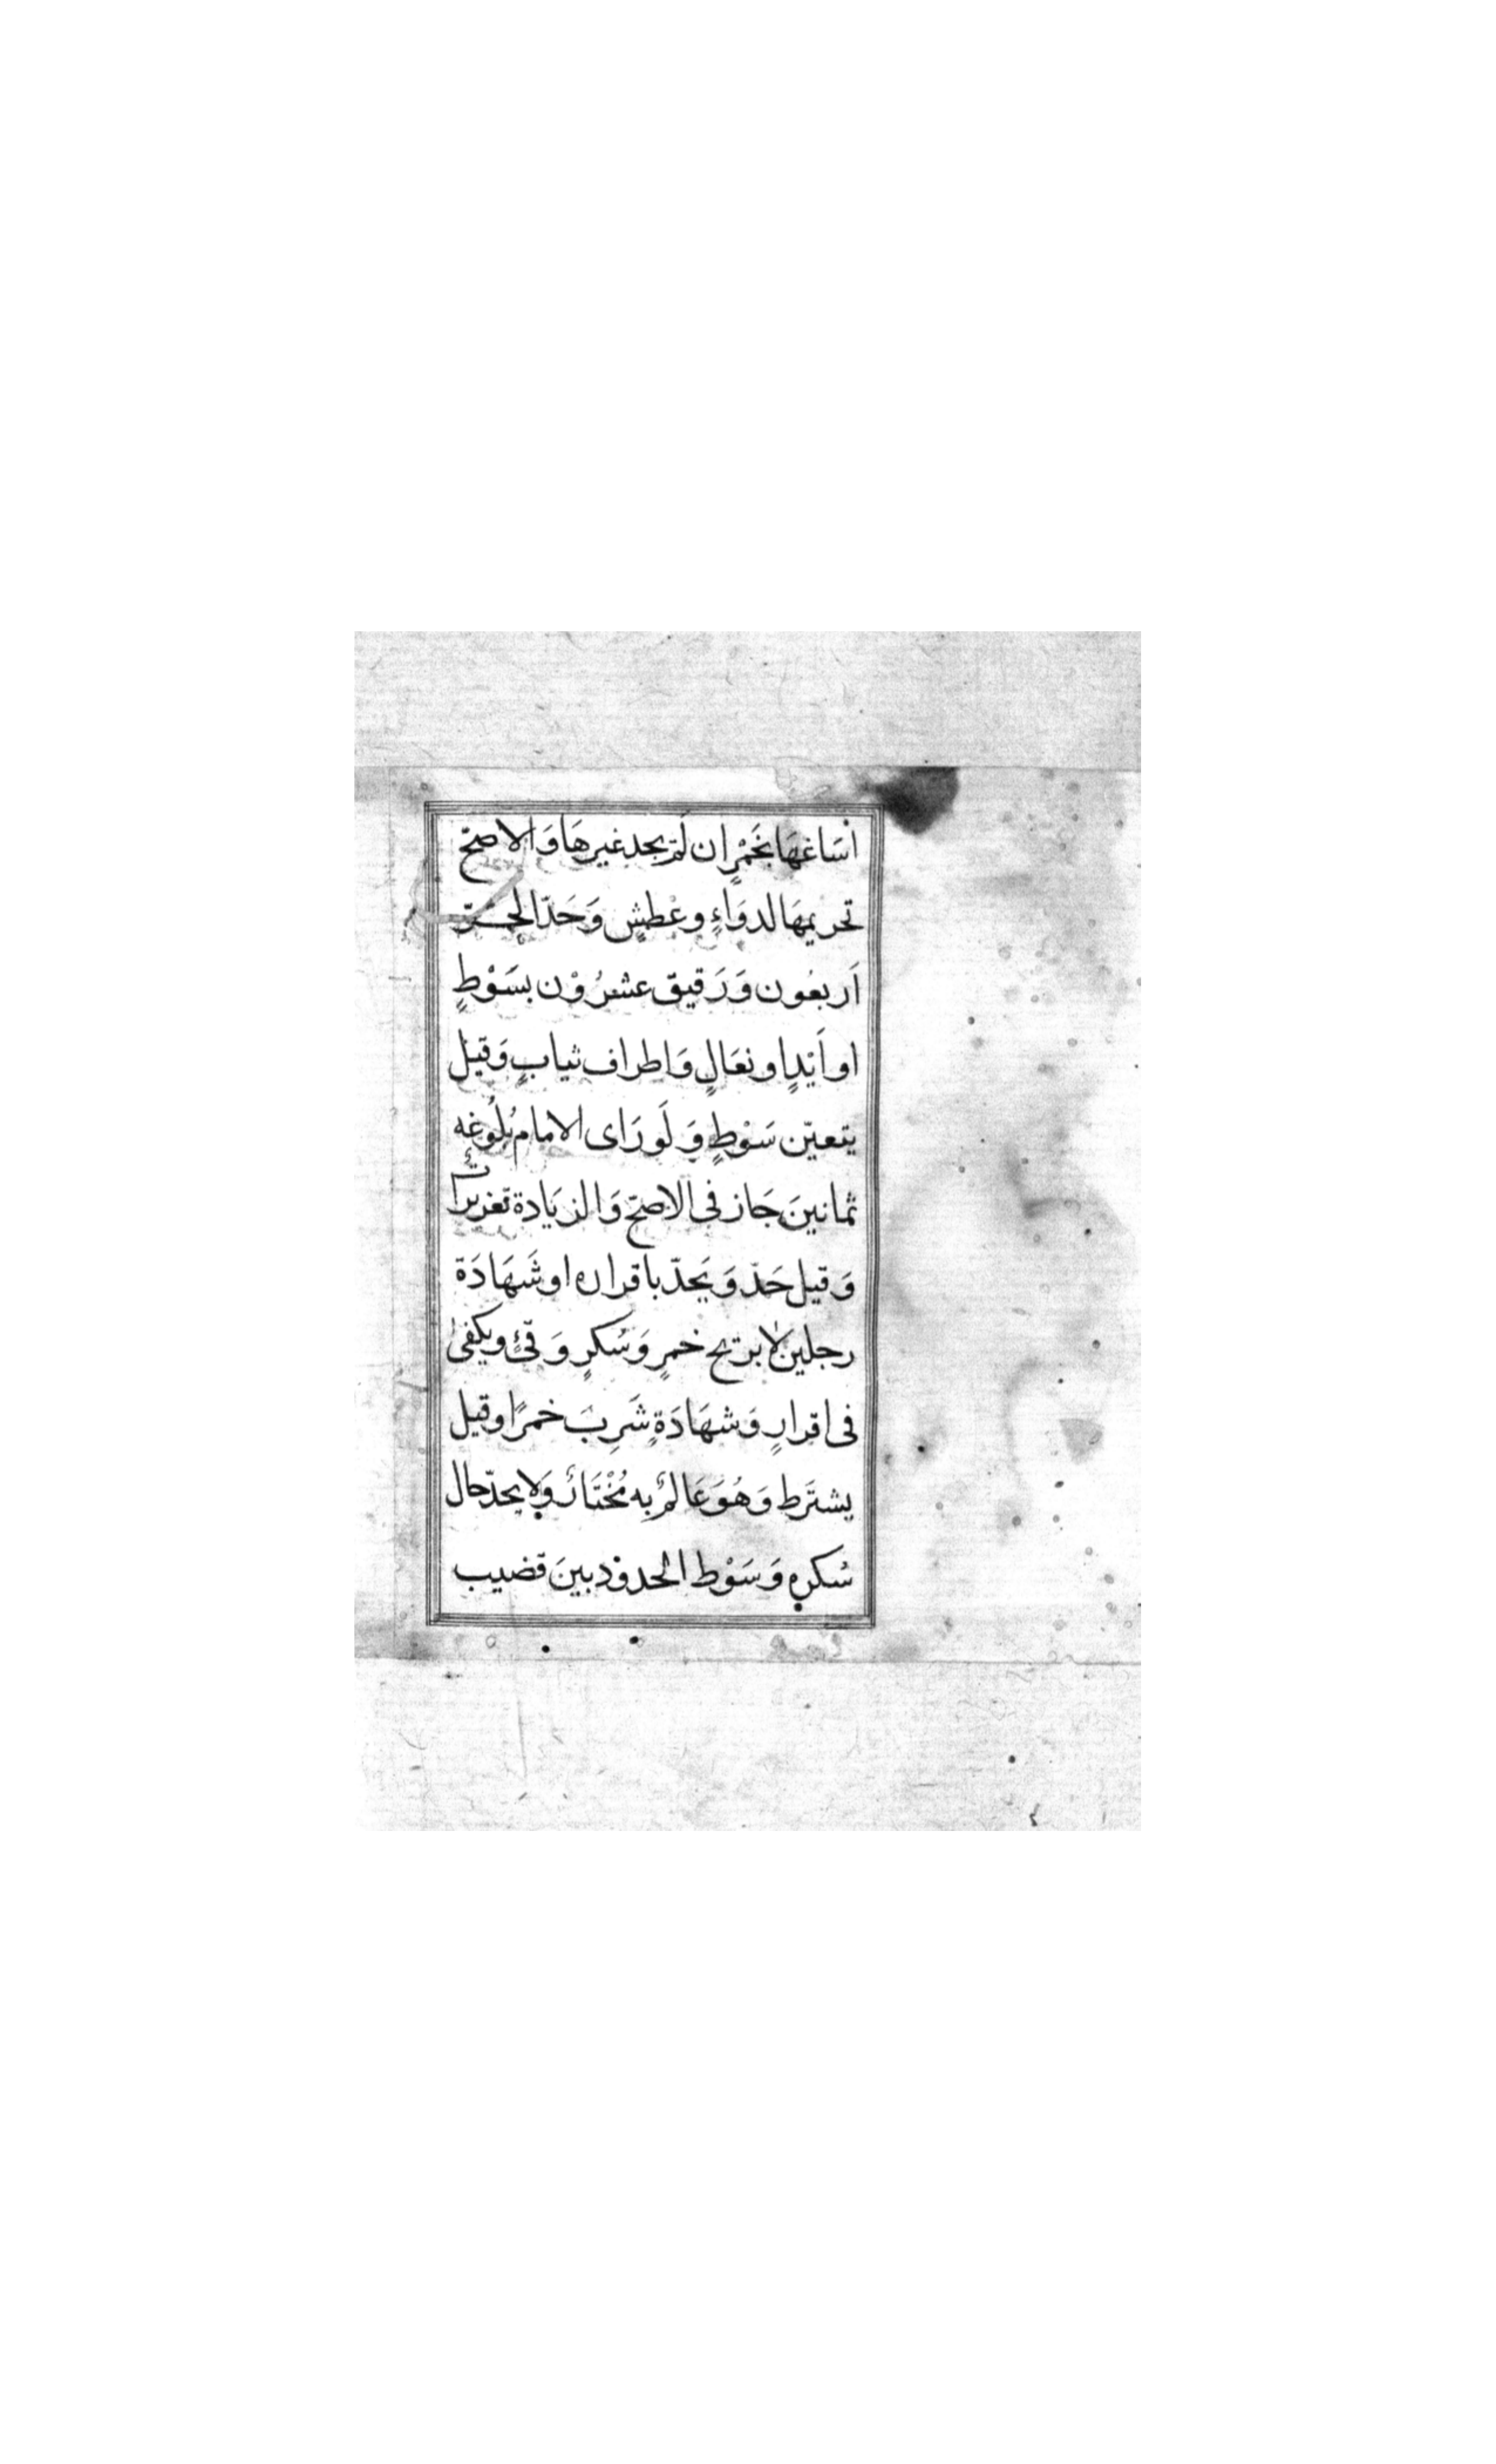 أسَاغهَا بخَمْرٍ ان لَمّ يجد غيرهَا وَالاصحّ
تحريمهَا لدوَاءٍ وعْطشٍ وَحَدّ الحــرّ
اَربعُون وَرَقيق عشرُوْن بسَوْطٍ
او اَيْدٍ او نعَالٍ وَاطراف ثيابٍ وَقيل
يتعيّن سَوْطٍ وَلَو رَاى الامام بُلُوغه
ثمانينَ جَاز فى الاصحّ وَالزيَادة تعزيرات
وَقيل حَدّ وَيَحدّ باقراره او شَهَادَة
رجلين لا بريح خمرٍ وَسُكرٍ وَقئٍ ويكفى
فى اقرارٍ وَشهَادَةٍ شَرِبَ خمرًا وقيل
يشترَط وَهُوَ عَالمٌ به مُخْتَارٌ وَلا يحدّ حال
سُكره وَسَوْط الحدود بينَ قضيب